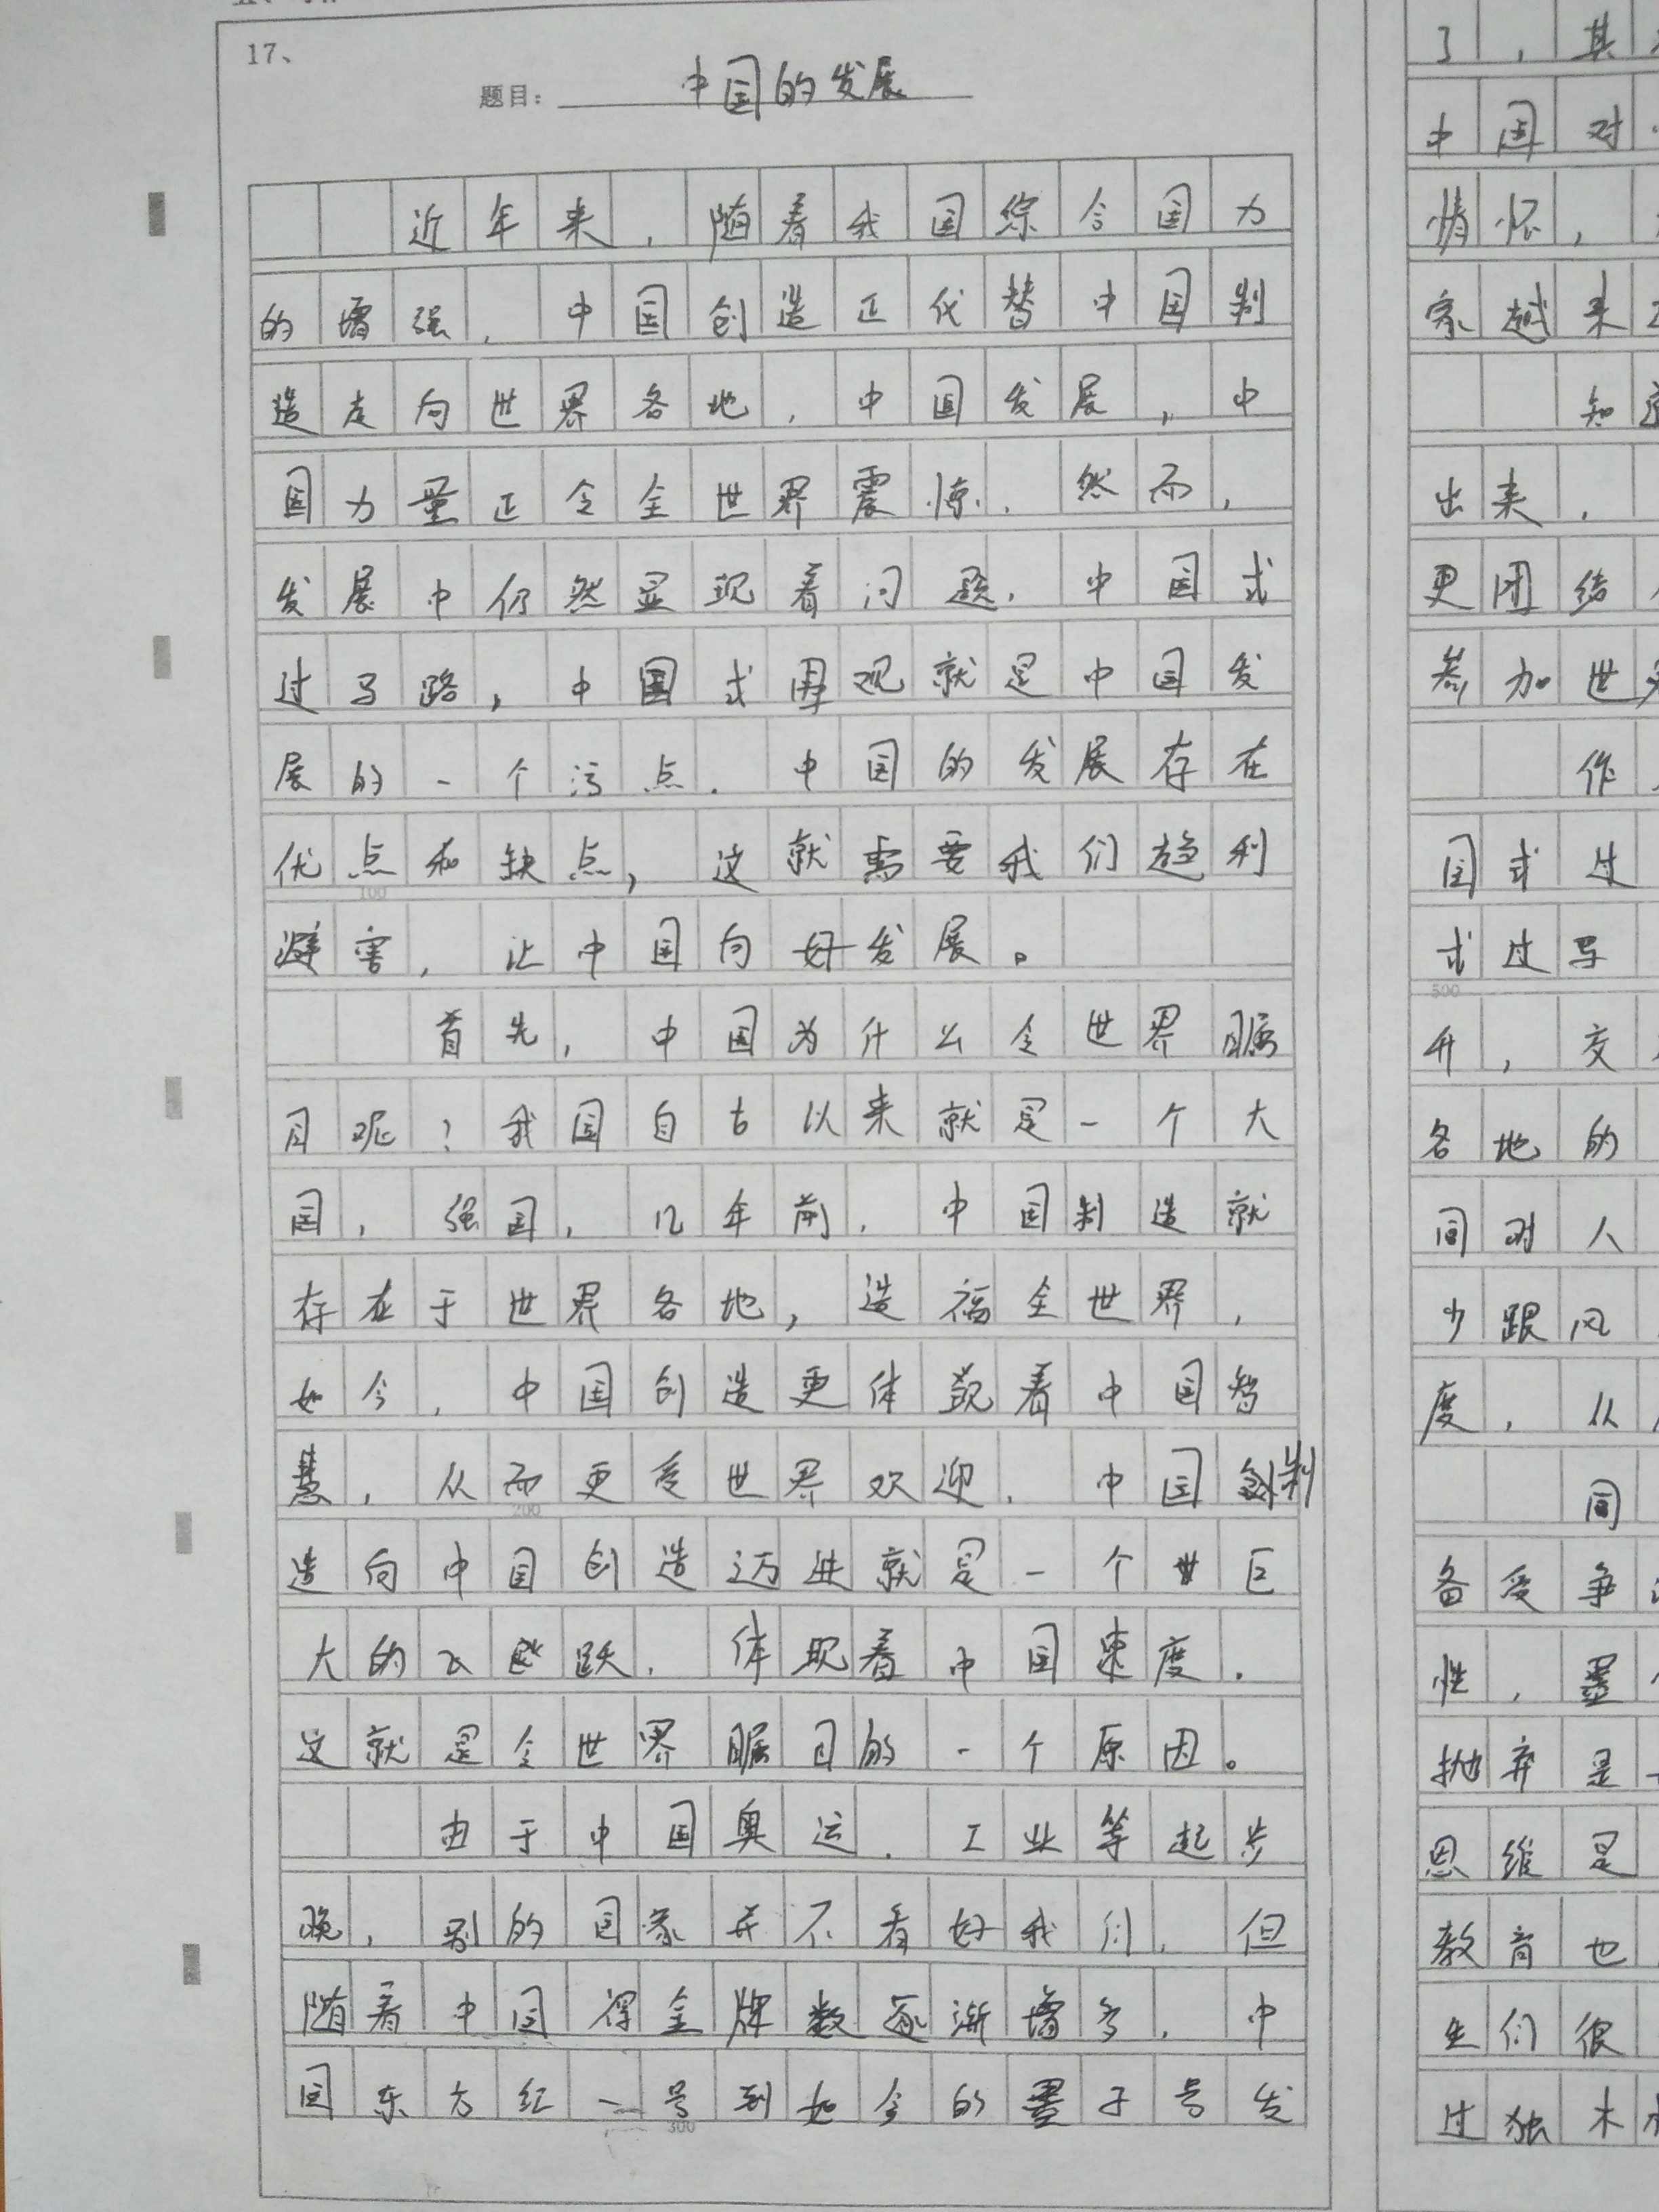 17、
题目：中国的发展
近年来，随着我国综合国力
的增强，中国创造正代替中国制
造走向世界各地，中国发展，中
国力量正令全世界震惊，然而，
发展中仍然显现着问题，中国式
过马路，中国式围观就是中国发
展的一个污点．中国的发展存在
优点和缺点，这就需要我们趋利
避害，让中国向好发展。
首先，中国为什么令世界瞩
目呢？我国自古以来就是一个大
国，强国，几年前，中国制造就
存在于世界各地，造福全世界，
如今，中国创造更体现着中国智
慧，从而更受世界欢迎．中国制
造向中国创造迈进就是一个巨
大的飞跃，体现着中国速度．
这就是令世界瞩目的一个原因。
由于中国奥运．工业等起步
晚，别的国家并不看好我们，但
随着中国得金牌数逐渐增多，中
国东方红一号到如今的墨子号发
100
200
300
了，其
中国对
情怀，
家越来
知道
出来，
更团结
参加世界
作
国式过
式过马
500
升，交
各地的
同时人
少跟风
度，从
同
备受争
性，墨
抛弃是
思维是
教育也
生们很
过独木